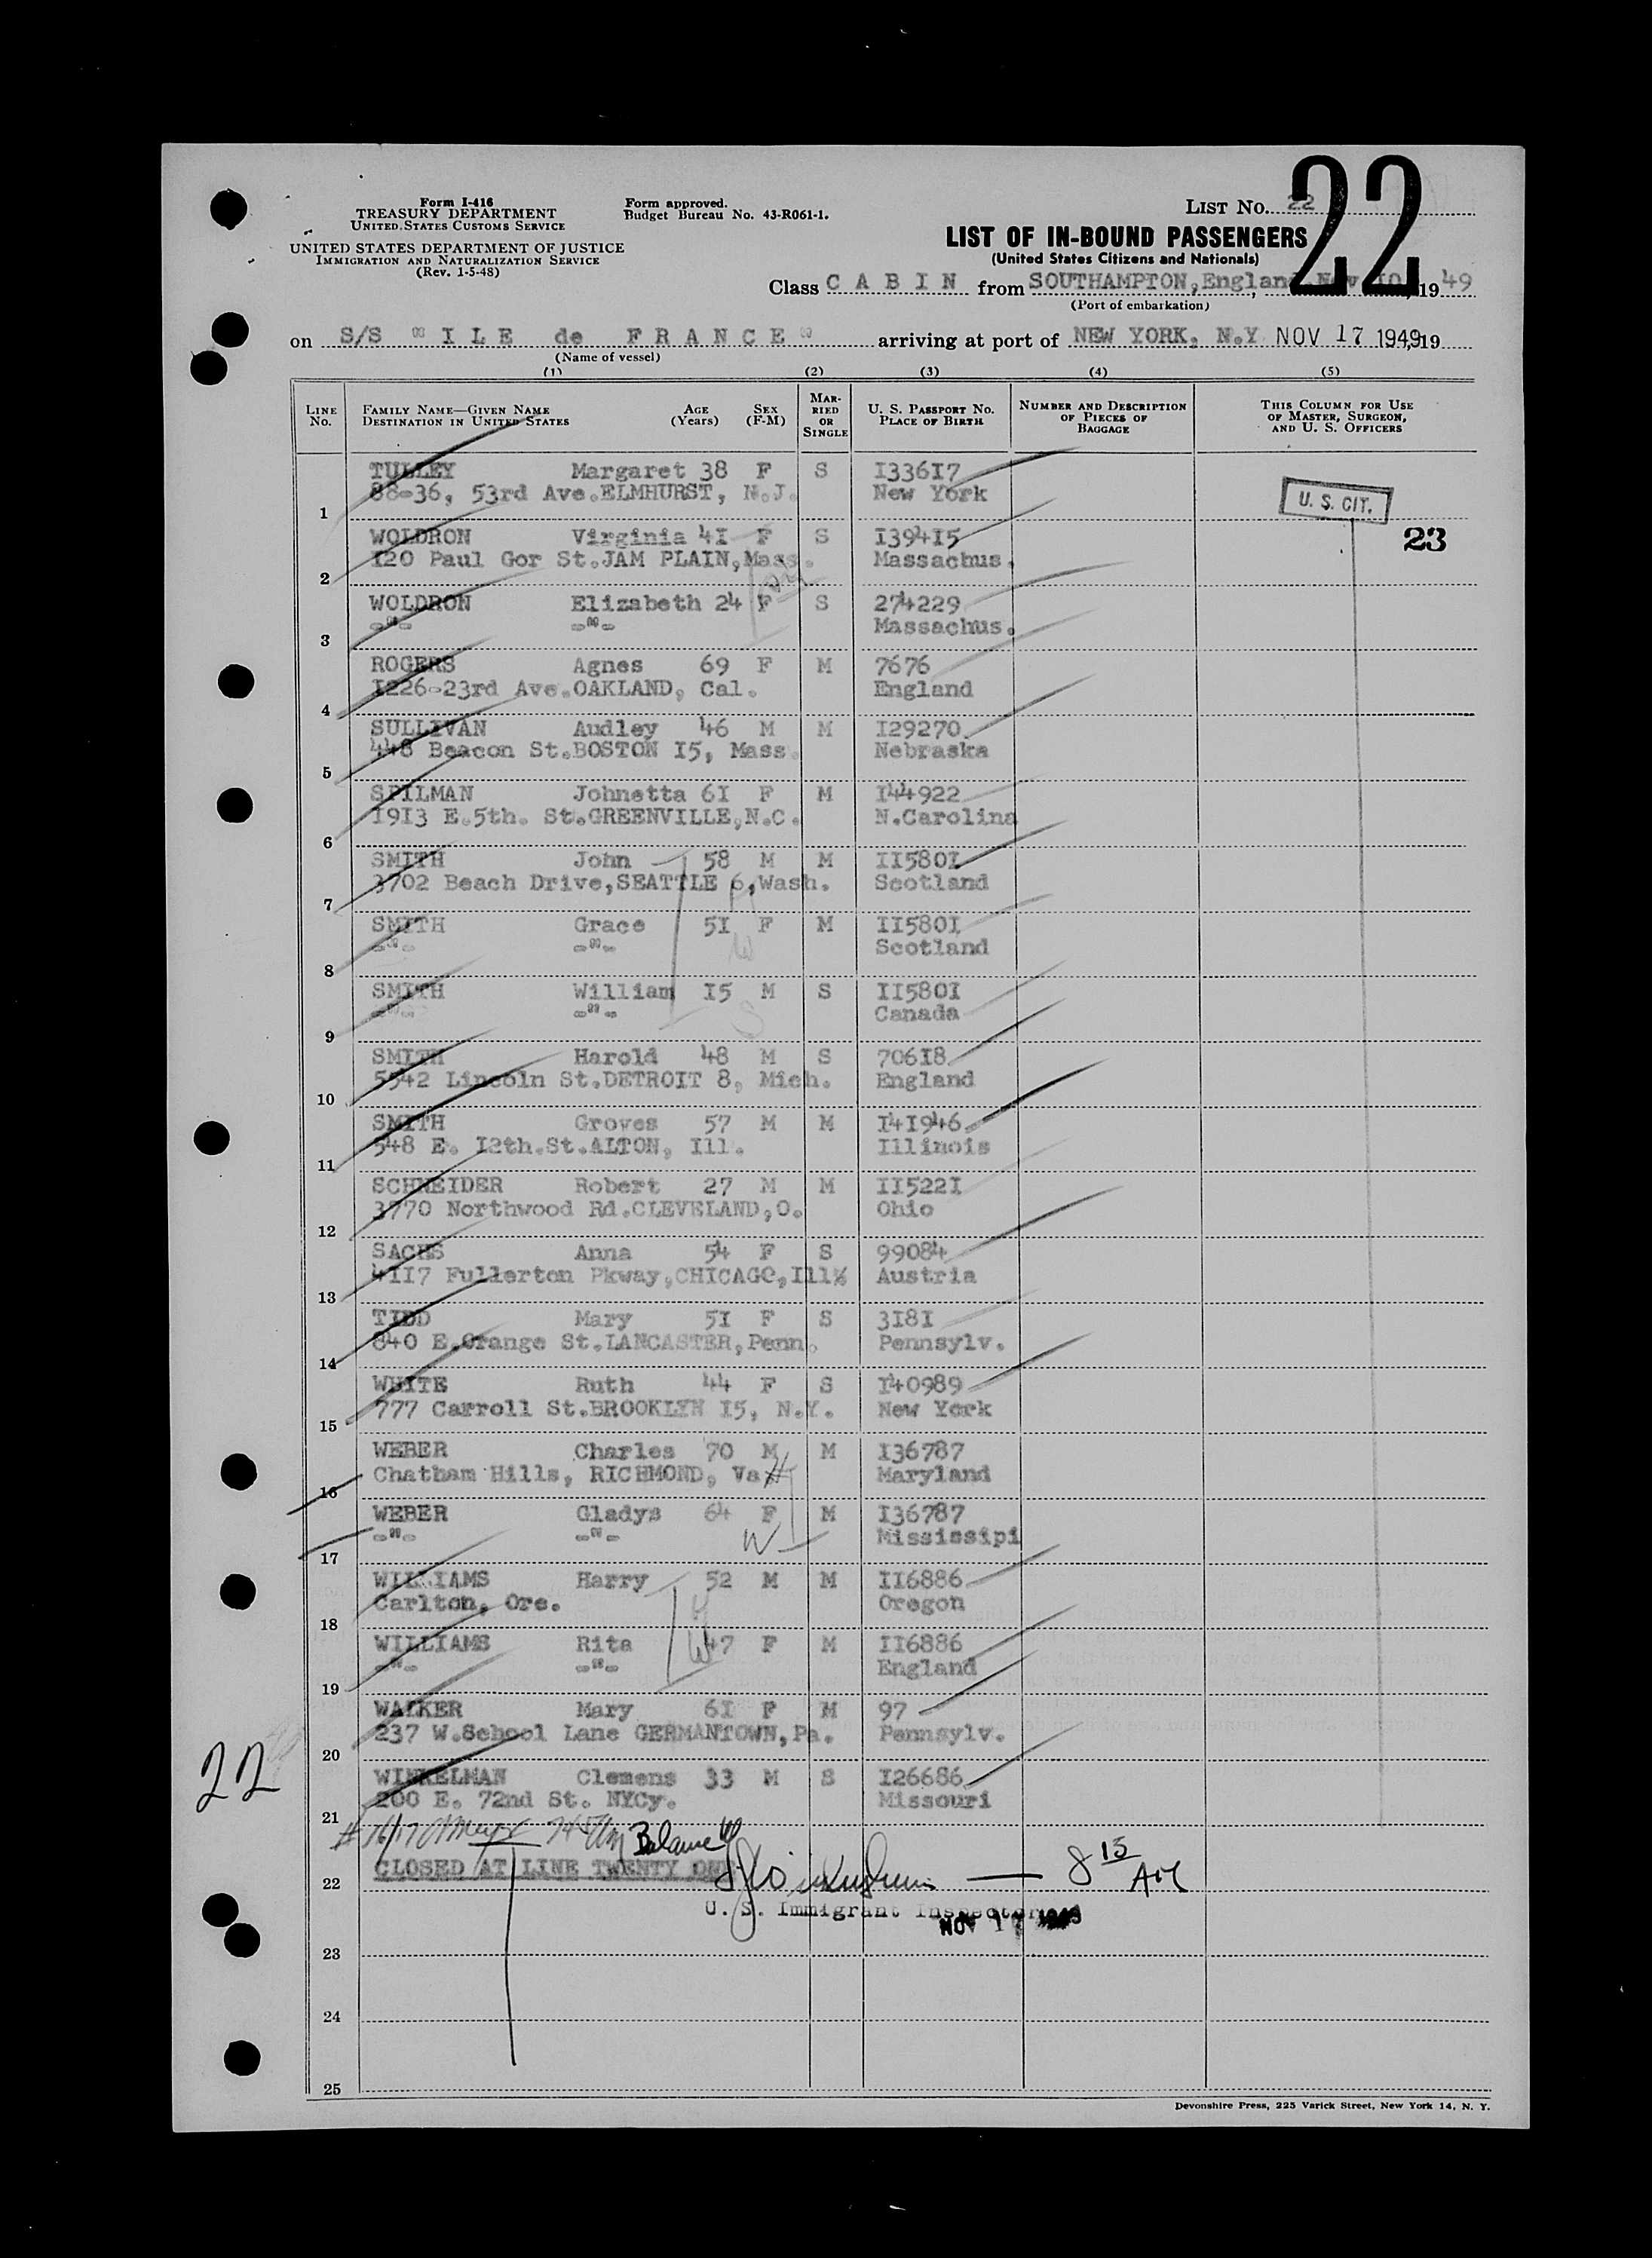 Form I-416
TREASURY DEPARTMENT
UNITED STATES CUSTOMS SERVICE
UNITED STATES DEPARTMENT OF JUSTICE
IMMIGRATION AND NATURALIZATION SERVICE
(Rev. 1-5-48)
Form approved.
Budget Bureau No. 43-R061-1.
LIST No. 22
22
LIST OF IN-BOUND PASSENGERS
(United States Citizens and Nationals)
Class C A B I N from SOUTHAMPTON,England,Nov 10, 1949
(Port of embarkation)
on S/S "I L E de F R A N C E" arriving at port of NEW YORK, N.Y NOV 17 1949,19
(Name of vessel)
(1) (2) (3) (4) (5)
LINE No. FAMILY NAME—GIVEN NAME DESTINATION IN UNITED STATES AGE (Years) SEX (F-M) MARRIED OR SINGLE U. S. PASSPORT No. PLACE OF BIRTH NUMBER AND DESCRIPTION OF PIECES OF BAGGAGE THIS COLUMN FOR USE OF MASTER, SURGEON, AND U. S. OFFICERS
TULLEY Margaret 38 F S I336I7
88-36, 53rd Ave.ELMHURST, N.J. New York
1
U. S. CIT.
WOLDRON Virginia 4I F S I394I5
23
I20 Paul Gor St.JAM PLAIN,Mass. Massachus.
2
WOLDRON Elizabeth 24 F S 274229
-"- -"- Massachus.
3
ROGERS Agnes 69 F M 7676
I226-23rd Ave.OAKLAND, Cal. England
4
SULLIVAN Audley 46 M M I29270
448 Beacon St.BOSTON I5, Mass. Nebraska
5
SPILMAN Johnetta 6I F M I44922
I9I3 E.5th. St.GREENVILLE,N.C. N.Carolina
6
SMITH John 58 M M II580I
3702 Beach Drive,SEATTLE 6,Wash. Scotland
7
SMITH Grace 5I F M II580I
-"- -"- Scotland
8
SMITH William I5 M S II580I
-"- -"- Canada
9
SMITH Harold 48 M S 706I8
5542 Lincoln St.DETROIT 8, Mich. England
10
SMITH Groves 57 M M I4I946
548 E. I2th.St.ALTON, Ill. Illinois
11
SCHNEIDER Robert 27 M M II522I
3770 Northwood Rd.CLEVELAND,O. Ohio
12
SACHS Anna 54 F S 99084
4II7 Fullerton Pkway,CHICAGO,Ill% Austria
13
TIDD Mary 5I F S 3I8I
840 E.Orange St.LANCASTER,Penn. Pennsylv.
14
WHITE Ruth 44 F S I40989
777 Carroll St.BROOKLYN I5, N.Y. New York
15
WEBER Charles 70 M M I36787
Chatham Hills, RICHMOND, Va H Maryland
16
WEBER Gladys 64 F M I36787
-"- -"- W Mississipi
17
WILLIAMS Harry 52 M M II6886
Carlton, Ore. H Oregon
18
WILLIAMS Rita W 47 F M II6886
-"- -"- England
19
WALKER Mary 6I F M 97
237 W.School Lane GERMANTOWN,Pa. Pennsylv.
20
22
WINKELMAN Clemens 33 M S I26686
200 E. 72nd St. NYCy. Missouri
21
Balance
CLOSED AT LINE TWENTY ONE
8 15 AM
22
U. S. Immigrant Inspector
NOV 17 1949
23
24
25
Devonshire Press, 225 Varick Street, New York 14, N. Y.